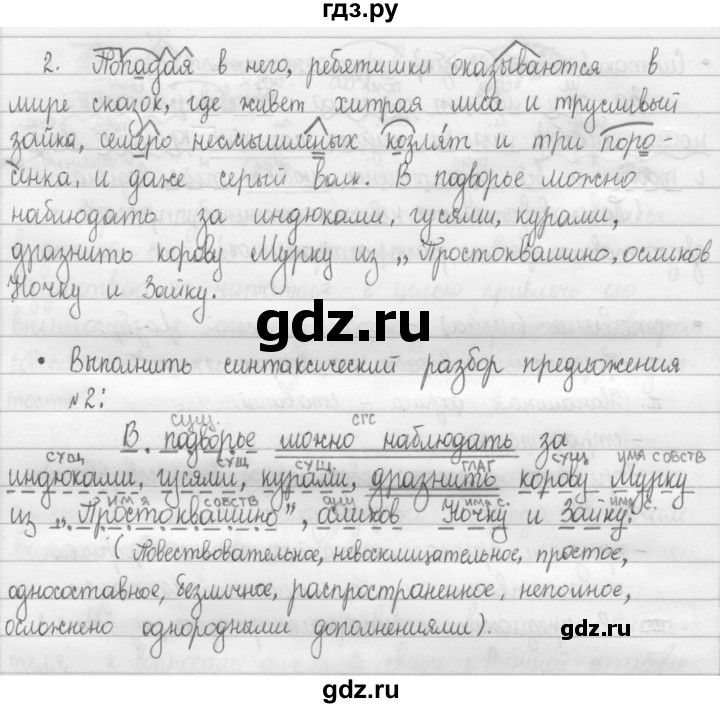 гдз.ру
2. Попадая в него, ребятишки оказываются в
мире сказок, где живет хитрая лиса и трусливый
зайка, семеро несмышлёных козлят и три поро-
сенка, и даже серый волк. В подворье можно
наблюдать за индюками, гусями, курами,
дразнить корову Мурку из „Простоквашино, осликов
Ночку и Зайку.
gdz.ru
• Выполнить синтаксический разбор предложения
№2:
сущ. СГС
В подворье можно наблюдать за
сущ сущ сущ. глаг сущ имя собств
индюками, гусями, курами, дразнить корову Мурку
имя собств сущ имя с. имя с.
из „Простоквашино", осликов Ночку и Зайку.
(Повествовательное, невосклицательное, простое,
односоставное, безличное, распространенное, неполное,
осложнено однородными дополнениями).
gdz.ru
gdz.ru